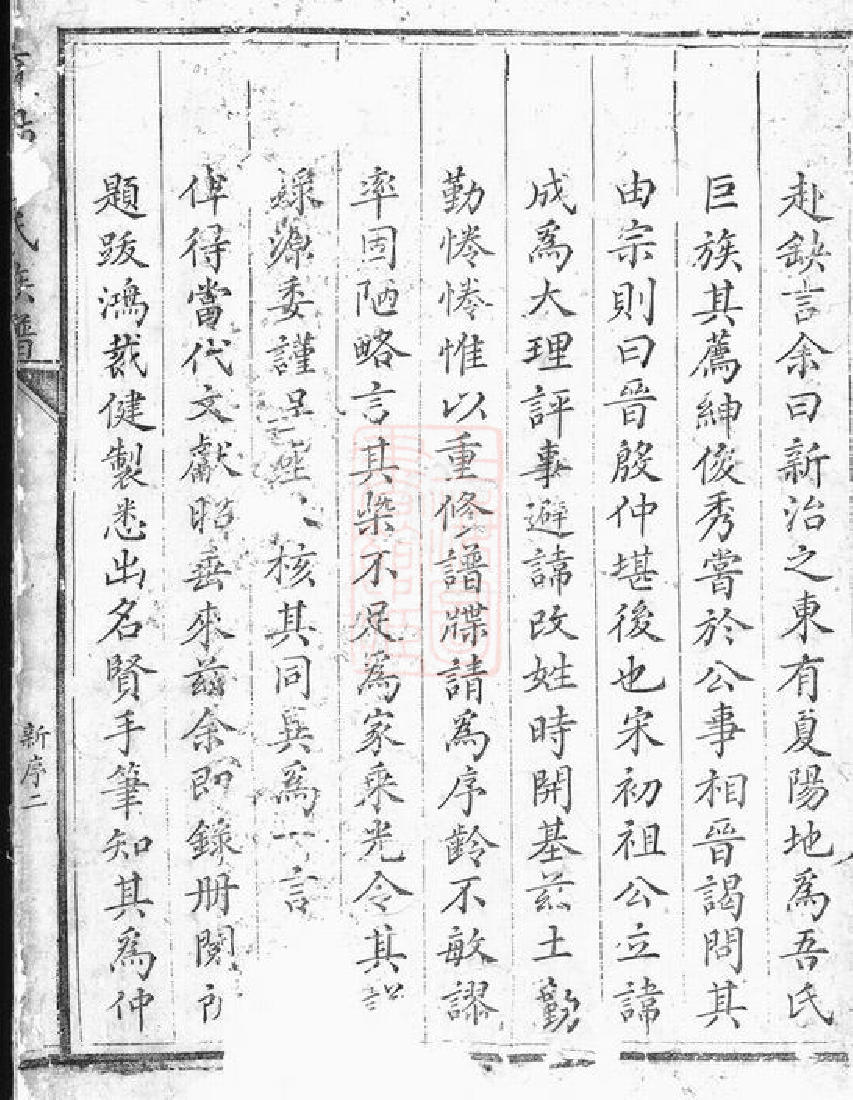 赴缺言余曰新治之東有夏陽地爲吾氏
巨族其薦紳俊秀嘗於公事相晉謁問其
由宗則曰晉殷仲堪後也宋初祖公立諱
成爲大理評事避諱改姓時開基茲土勤
勤惓惓惟以重修譜牒請爲序齡不敏謬
率固陋略言其槩不足爲家乘光令其
源委謹呈核其同異爲一言
俾得當代文獻昭垂來茲余即錄册閱
題跋鴻裁健製悉出名賢手筆知其爲仲
氏族譜
新序二